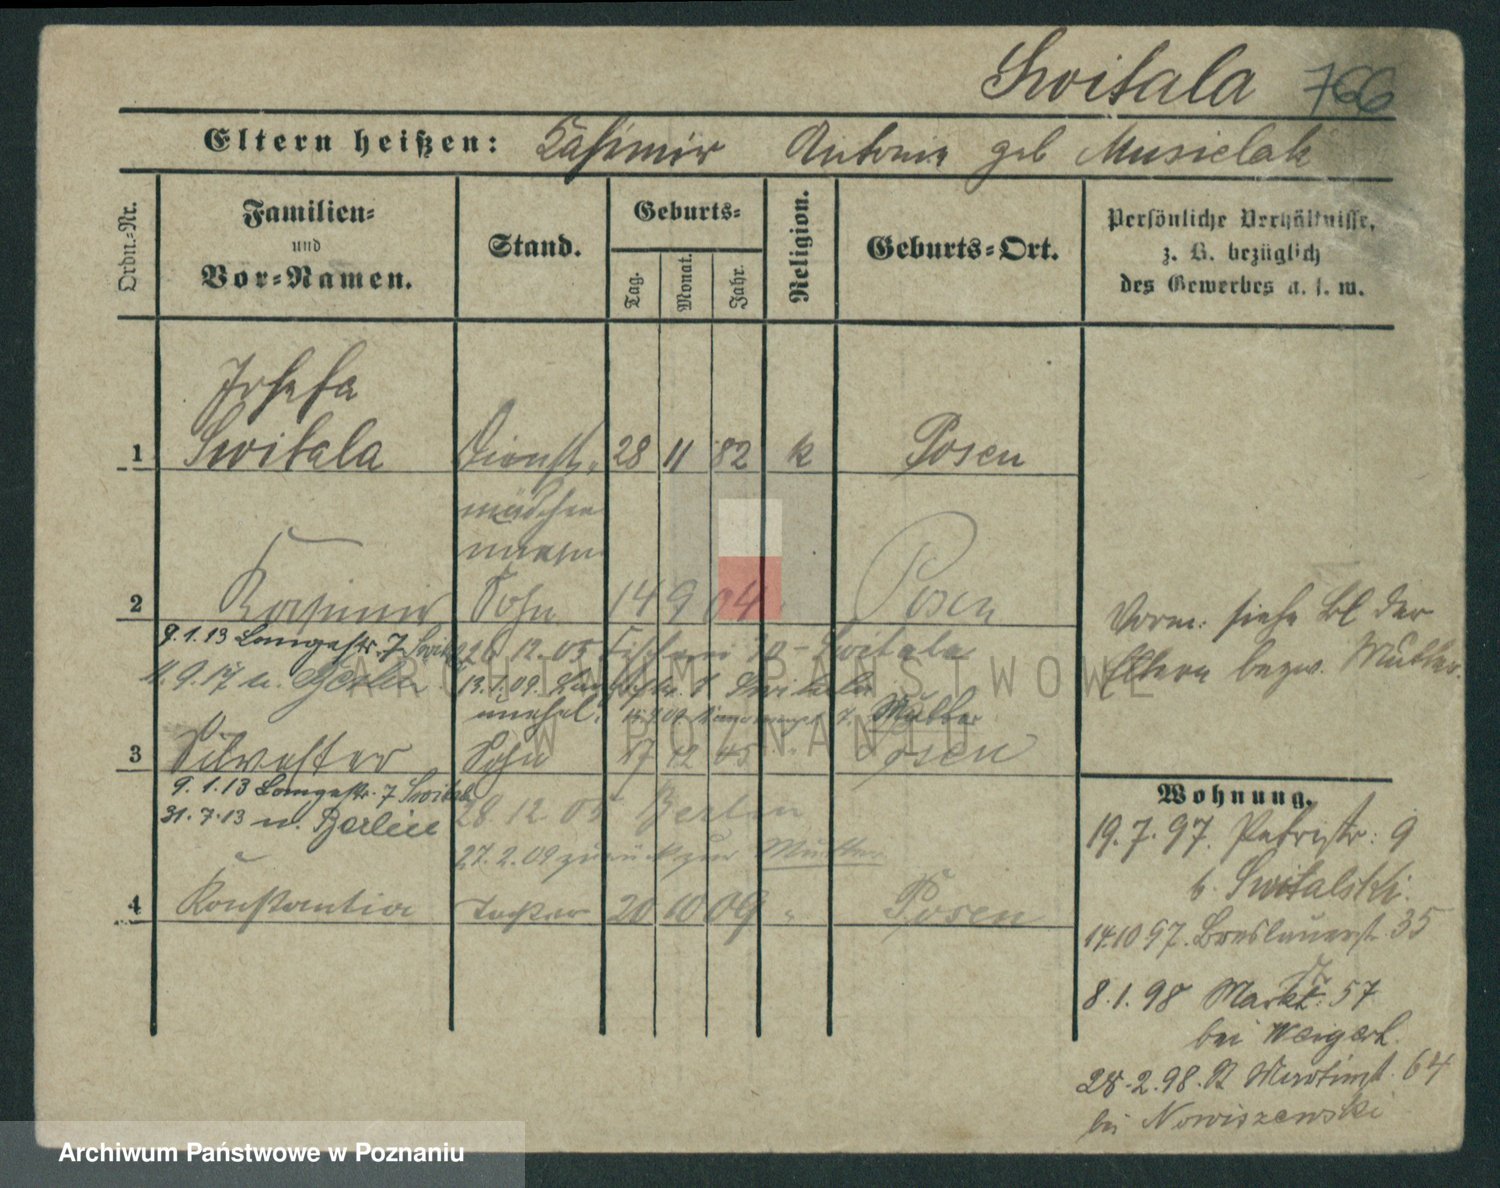 Switala 766
Eltern heißen: Kasimir Antonie geb Musielak
Ordn.-Nr.
Familien- und Vor-Namen.
Stand.
Geburts-
Tag.
Monat.
Jahr.
Religion.
Geburts-Ort.
Persönliche Verhältnisse,
z. B. bezüglich
des Gewerbes u. s. w.
Josefa
1 Switala Dienst 28 11 82 k Posen
mädchen
2 Kasimir Sohn 14 9 04 Posen
9.1.13 Langestr. 7 Switala 22.12.05 Fischerei 30 - Switala
u. Berlin 13.1.09
unehel. Mutter
3 Silvester Sohn 17 12 05 " Posen
9.1.13 Langestr. 7 Switala
31.7.13 u. Berlin 28.12.05 Berlin
27.2.09 zurück zur Mutter
4 Konstantia Tochter 20 10 09 " Posen
Vorm: siehe Bl der
Eltern bezw. Mutter.
Wohnung.
19.7.97. Petristr: 9
b. Switalski.
14.10 97. Breslauerst. 35
8.1.98 Markt 57
bei Weigert.
28.2.98. St Martinst. 64
bei Nowiszewski
ARCHIWUM PAŃSTWOWE
W POZNANIU
Archiwum Państwowe w Poznaniu